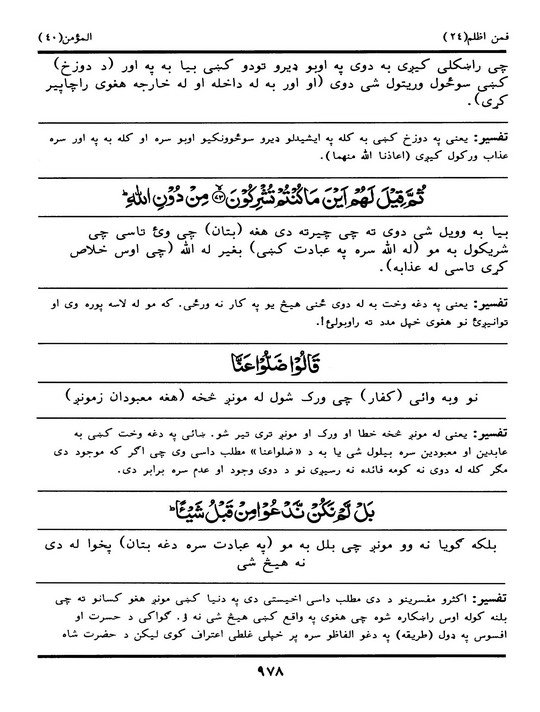 فمن اظلم(٢٤)
المؤمن(٤٠)
چی راښکلی کیږی به دوی په اوبو ډیرو تودو کښی بیا به په اور (د دوزخ)
کښی سوځول وریتول شی دوی (او اور به له داخله او له خارجه هغوی راچاپیر
کړی).
تفسیر: یعنی په دوزخ کښی به کله په ایشیدلو ډیرو سوځوونکیو اوبو سره او کله به په اور سره
عذاب ورکول کیږی (اعاذنا الله منهما).
ثُمَّ قِيْلَ لَهُمْ اَيْنَ مَا كُنْتُمْ تُشْرِكُوْنَ ﴿٧٣﴾ مِنْ دُوْنِ اللّٰهِ ؕ
بیا به وویل شی دوی ته چی چیرته دی هغه (بتان) چی وئ تاسی چی
شریکول به مو (له الله سره په عبادت کښی) بغیر له الله (چی اوس خلاص
کړی تاسی له عذابه).
تفسیر: یعنی په دغه وخت به له دوی ځنی هیڅ یو په کار نه ورځی. که مو له لاسه پوره وی او
توانیږئ نو هغوی خپل مدد ته راوبولئ!.
قَالُوْا ضَلُّوْا عَنَّا
نو وبه وائی (کفار) چی ورک شول له مونږ څخه (هغه معبودان زمونږ)
تفسیر: یعنی له مونږ څخه خطا او ورک او مونږ تری تیر شو. ښائی په دغه وخت کښی به
عابدین او معبودین سره بیلول شی یا به د «ضلواعنا» مطلب داسی وی چی اگر که موجود دی
مگر کله له دوی نه کومه فائده نه رسیږی نو د دوی وجود او عدم سره برابر دی.
بَلْ لَّمْ نَكُنْ نَّدْعُوْا مِنْ قَبْلُ شَيْـًٔا ؕ
بلکه گویا نه وو مونږ چی بلل به مو (په عبادت سره دغه بتان) پخوا له دی
نه هیڅ شی
تفسیر: اکثرو مفسرینو د دی مطلب داسی اخیستی دی په دنیا کښی مونږ هغو کسانو ته چی
بلنه کوله اوس راښکاره شوه چی هغوی په واقع کښی هیڅ شی نه ؤ. گواکی د حسرت او
افسوس په ډول (طریقه) په دغو الفاظو سره پر خپلی غلطی اعتراف کوی لیکن د حضرت شاه
٩٧٨